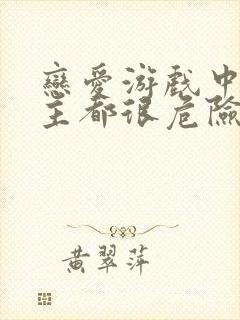 戀愛游戲中
主都很危險
黃翠萍